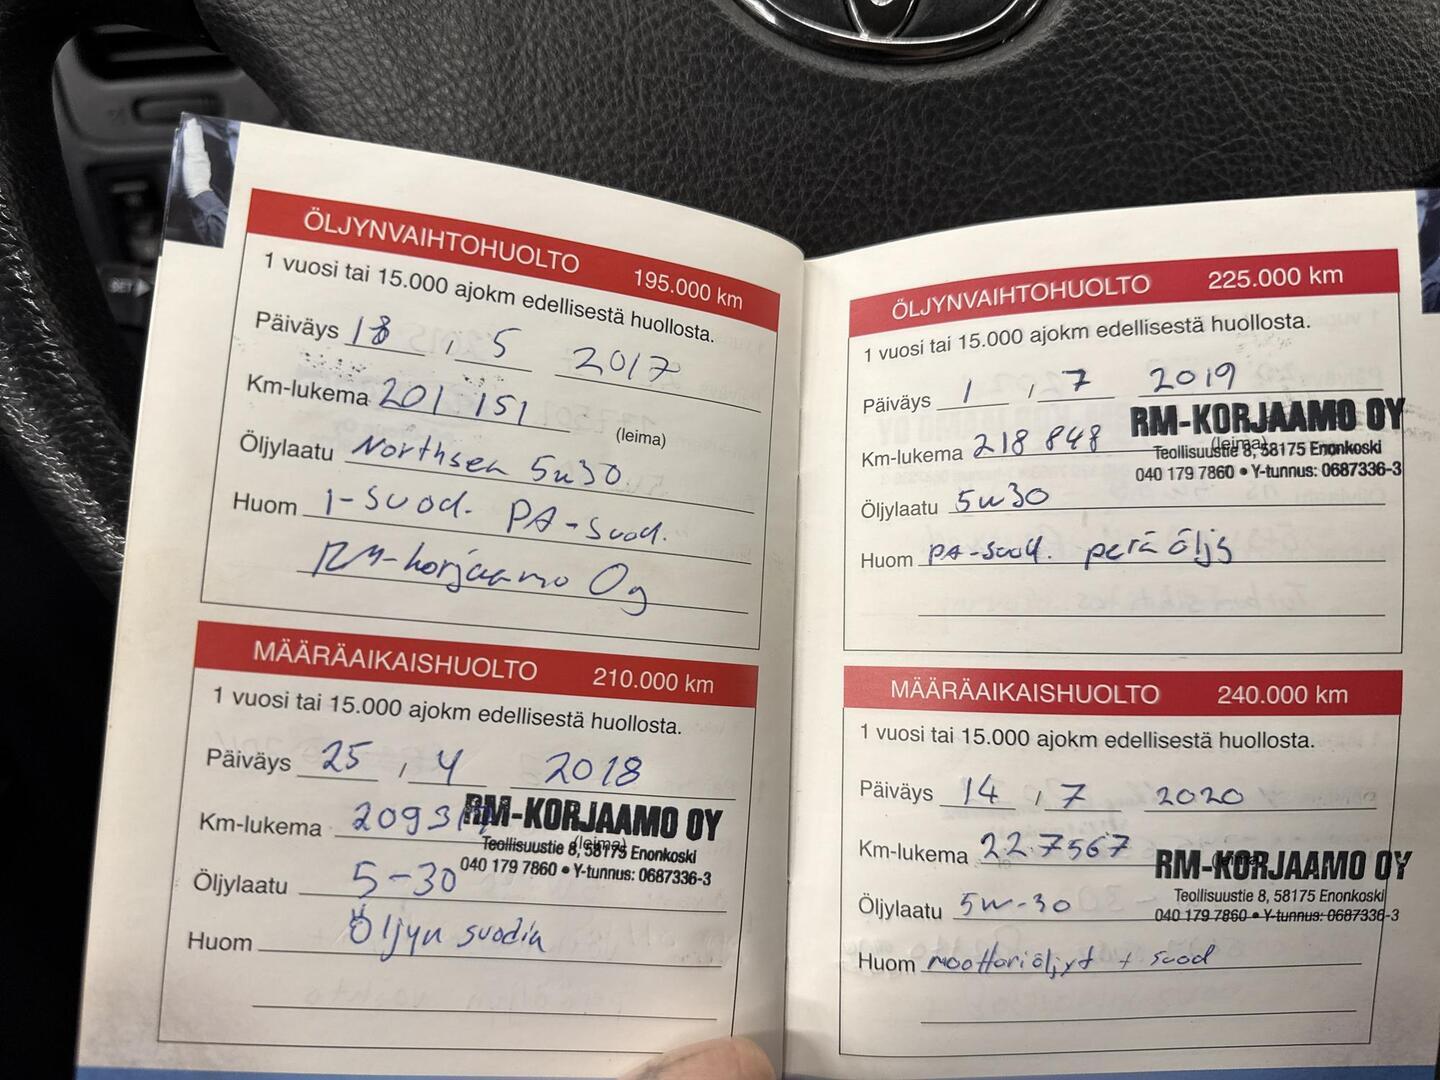 SET
ÖLJYNVAIHTOHUOLTO 195.000 km
1 vuosi tai 15.000 ajokm edellisestä huollosta.
Päiväys 18 , 5 2017
Km-lukema 201 151
(leima)
Öljylaatu Northsea 5w30
Huom 1-suod. PA-suod.
RM-korjaamo Oy
MÄÄRÄAIKAISHUOLTO 210.000 km
1 vuosi tai 15.000 ajokm edellisestä huollosta.
Päiväys 25 , 4 2018
Km-lukema
RM-KORJAAMO OY
(leima)
Teollisuustie 8, 58175 Enonkoski
040 179 7860 • Y-tunnus: 0687336-3
Öljylaatu 5-30
Huom Öljyn suodin
ÖLJYNVAIHTOHUOLTO 225.000 km
1 vuosi tai 15.000 ajokm edellisestä huollosta.
Päiväys 1 , 7 2019
RM-KORJAAMO OY
Km-lukema 218 848
(leima)
Teollisuustie 8, 58175 Enonkoski
040 179 7860 • Y-tunnus: 0687336-3
Öljylaatu 5w30
Huom PA-suod. perä öljy
MÄÄRÄAIKAISHUOLTO 240.000 km
1 vuosi tai 15.000 ajokm edellisestä huollosta.
Päiväys 14 , 7 2020
Km-lukema 227567
RM-KORJAAMO OY
(leima)
Teollisuustie 8, 58175 Enonkoski
040 179 7860 • Y-tunnus: 0687336-3
Öljylaatu 5w-30
Huom moottoriöljyt + suod